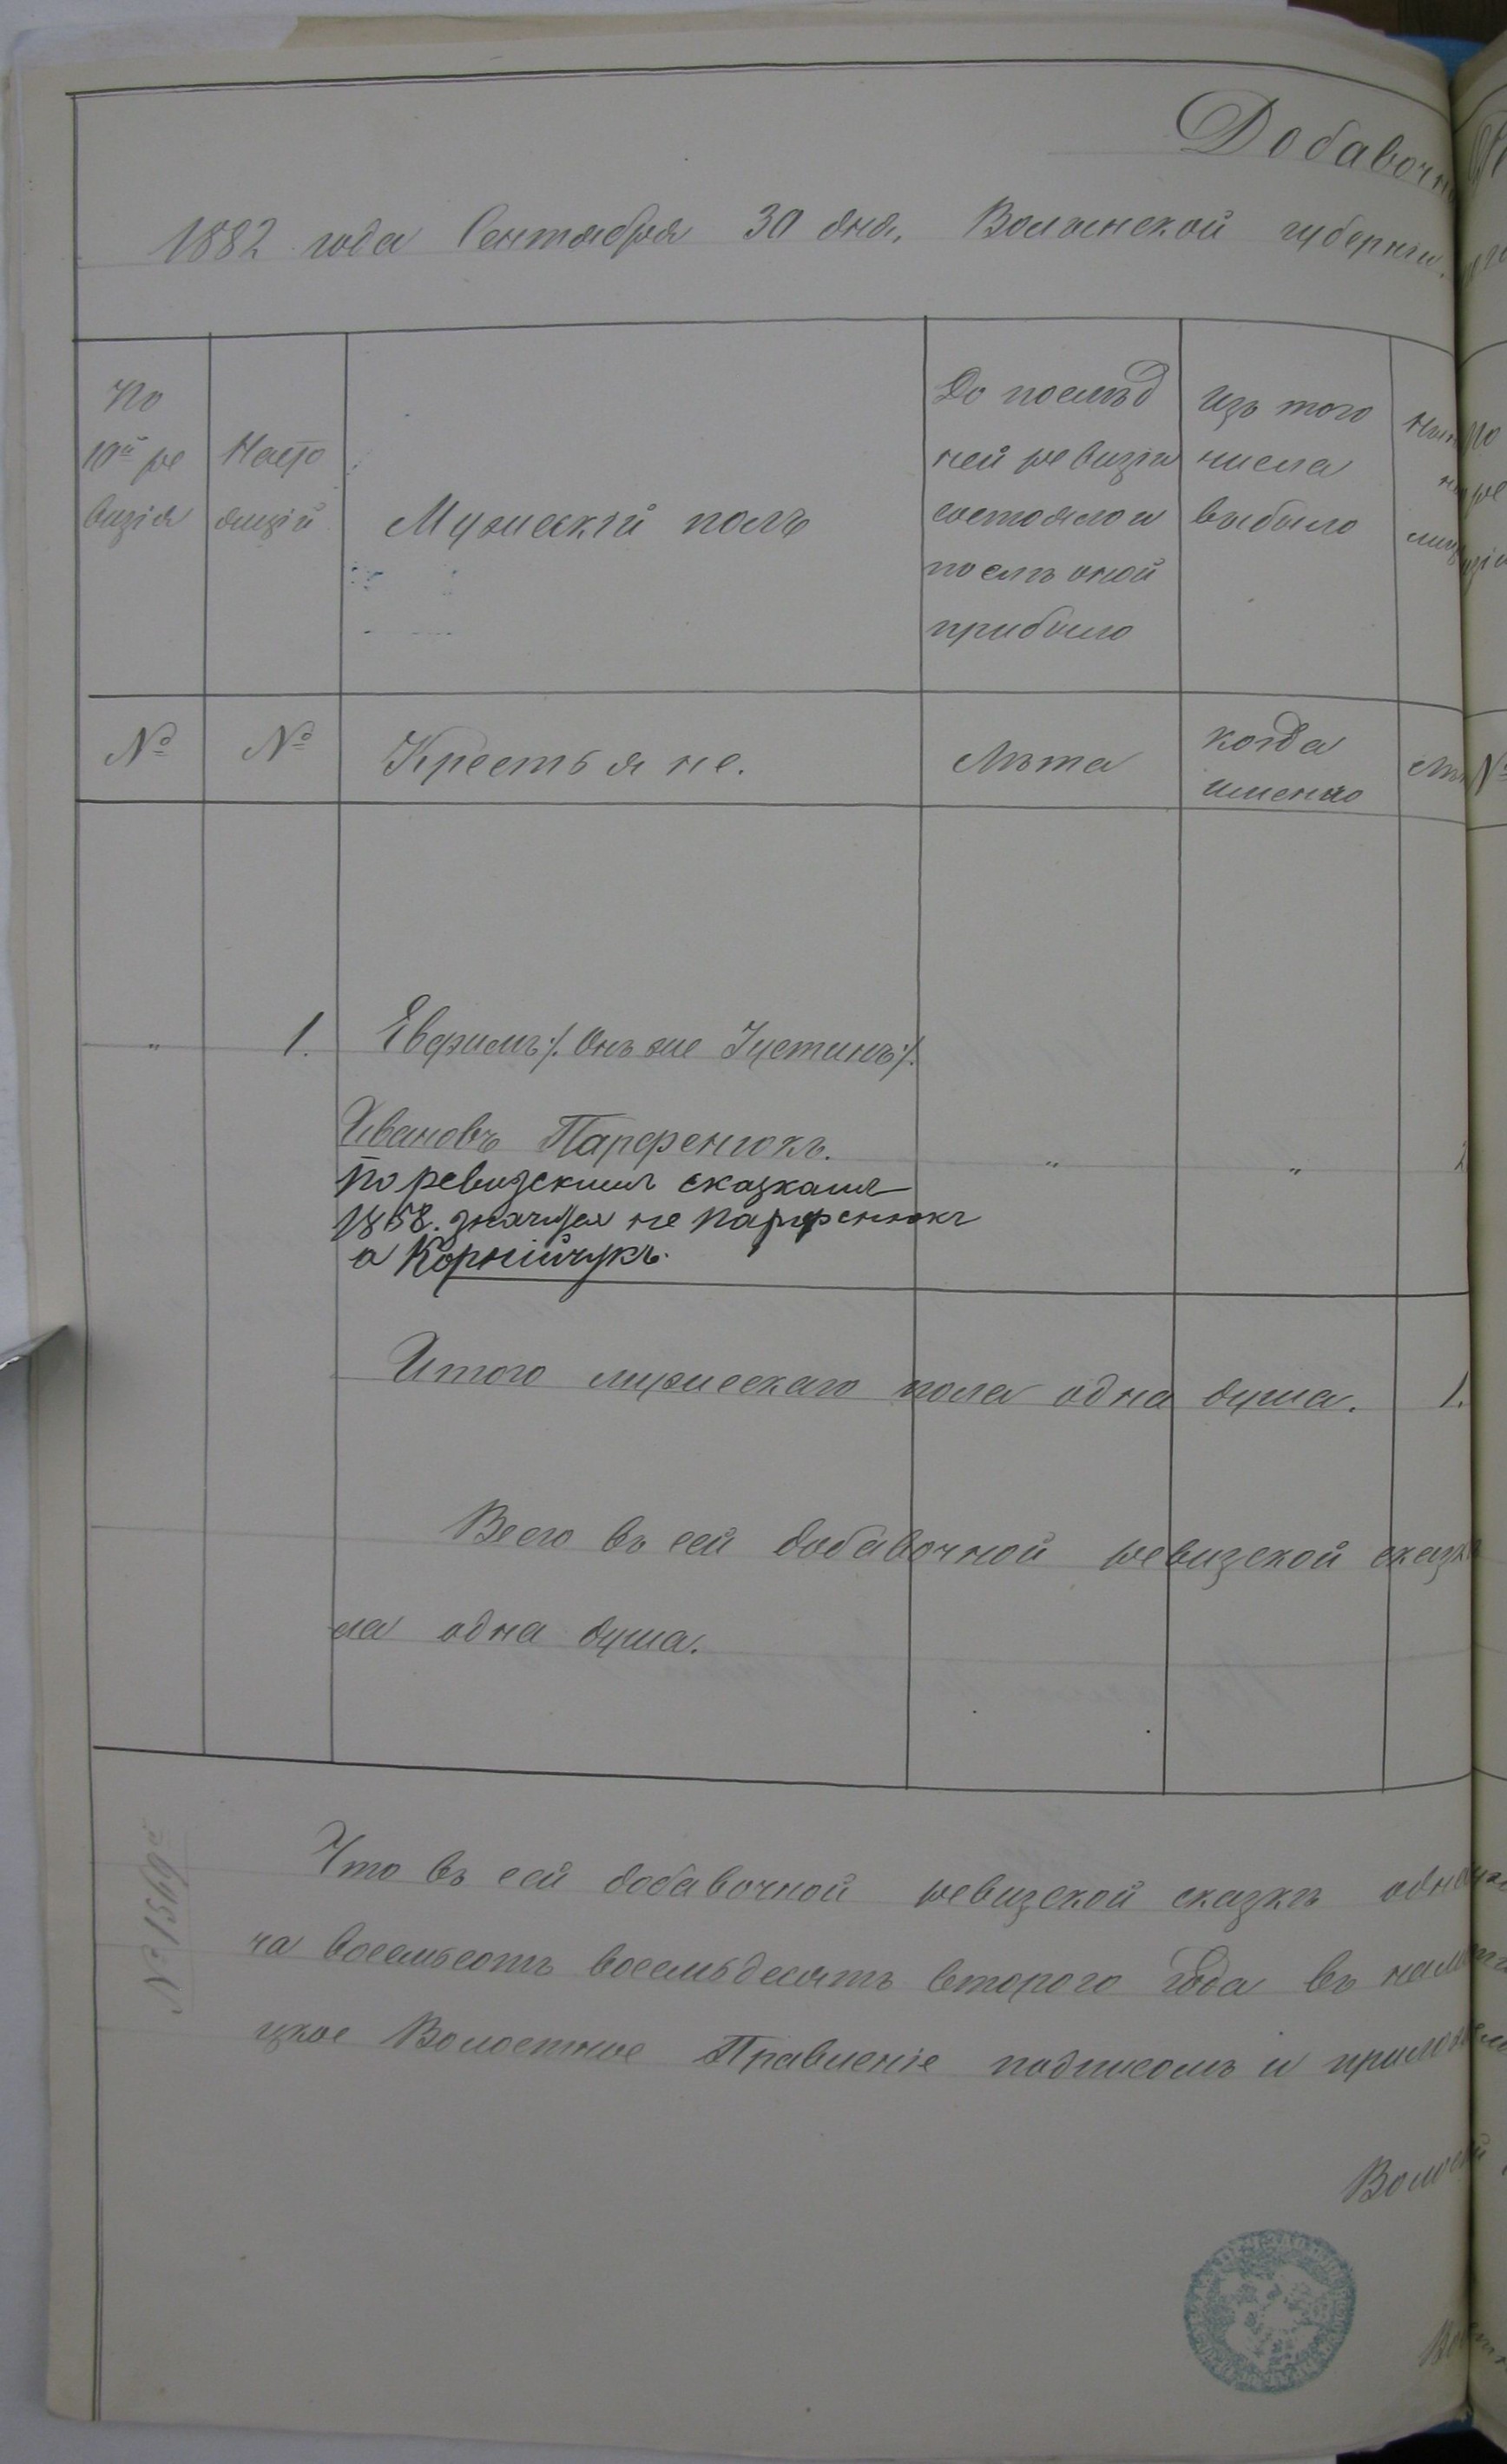 Добавочн
1882 года Сентября 30 дня, Волынской губернии.
По
10й ре
визіи
Насто
ящій
Мужескій полъ
До послѣд
ней ревизіи
состояло и
послѣ оной
прибыло
Изъ того
числа
выбыло
№
№
Крестьяне.
Лѣта
когда
именно
№
"
1.
Евфимъ ·/. Онъ же Іустинъ ·/.
Ивановъ Парфенюкъ.
"
"
По ревизскимъ сказкамъ
1858. значится не Парфенюкъ
а Корнійчукъ.
Итого мужескаго пола одна душа. 1.
Всего въ сей добавочной ревизской сказк
ла одна душа.
№ 1569й
Что въ сей добавочной ревизской сказкѣ одна
ча восемьсотъ восемьдесятъ второго года въ
цкое Волостное Правленіе подписомъ и прилож
Волост